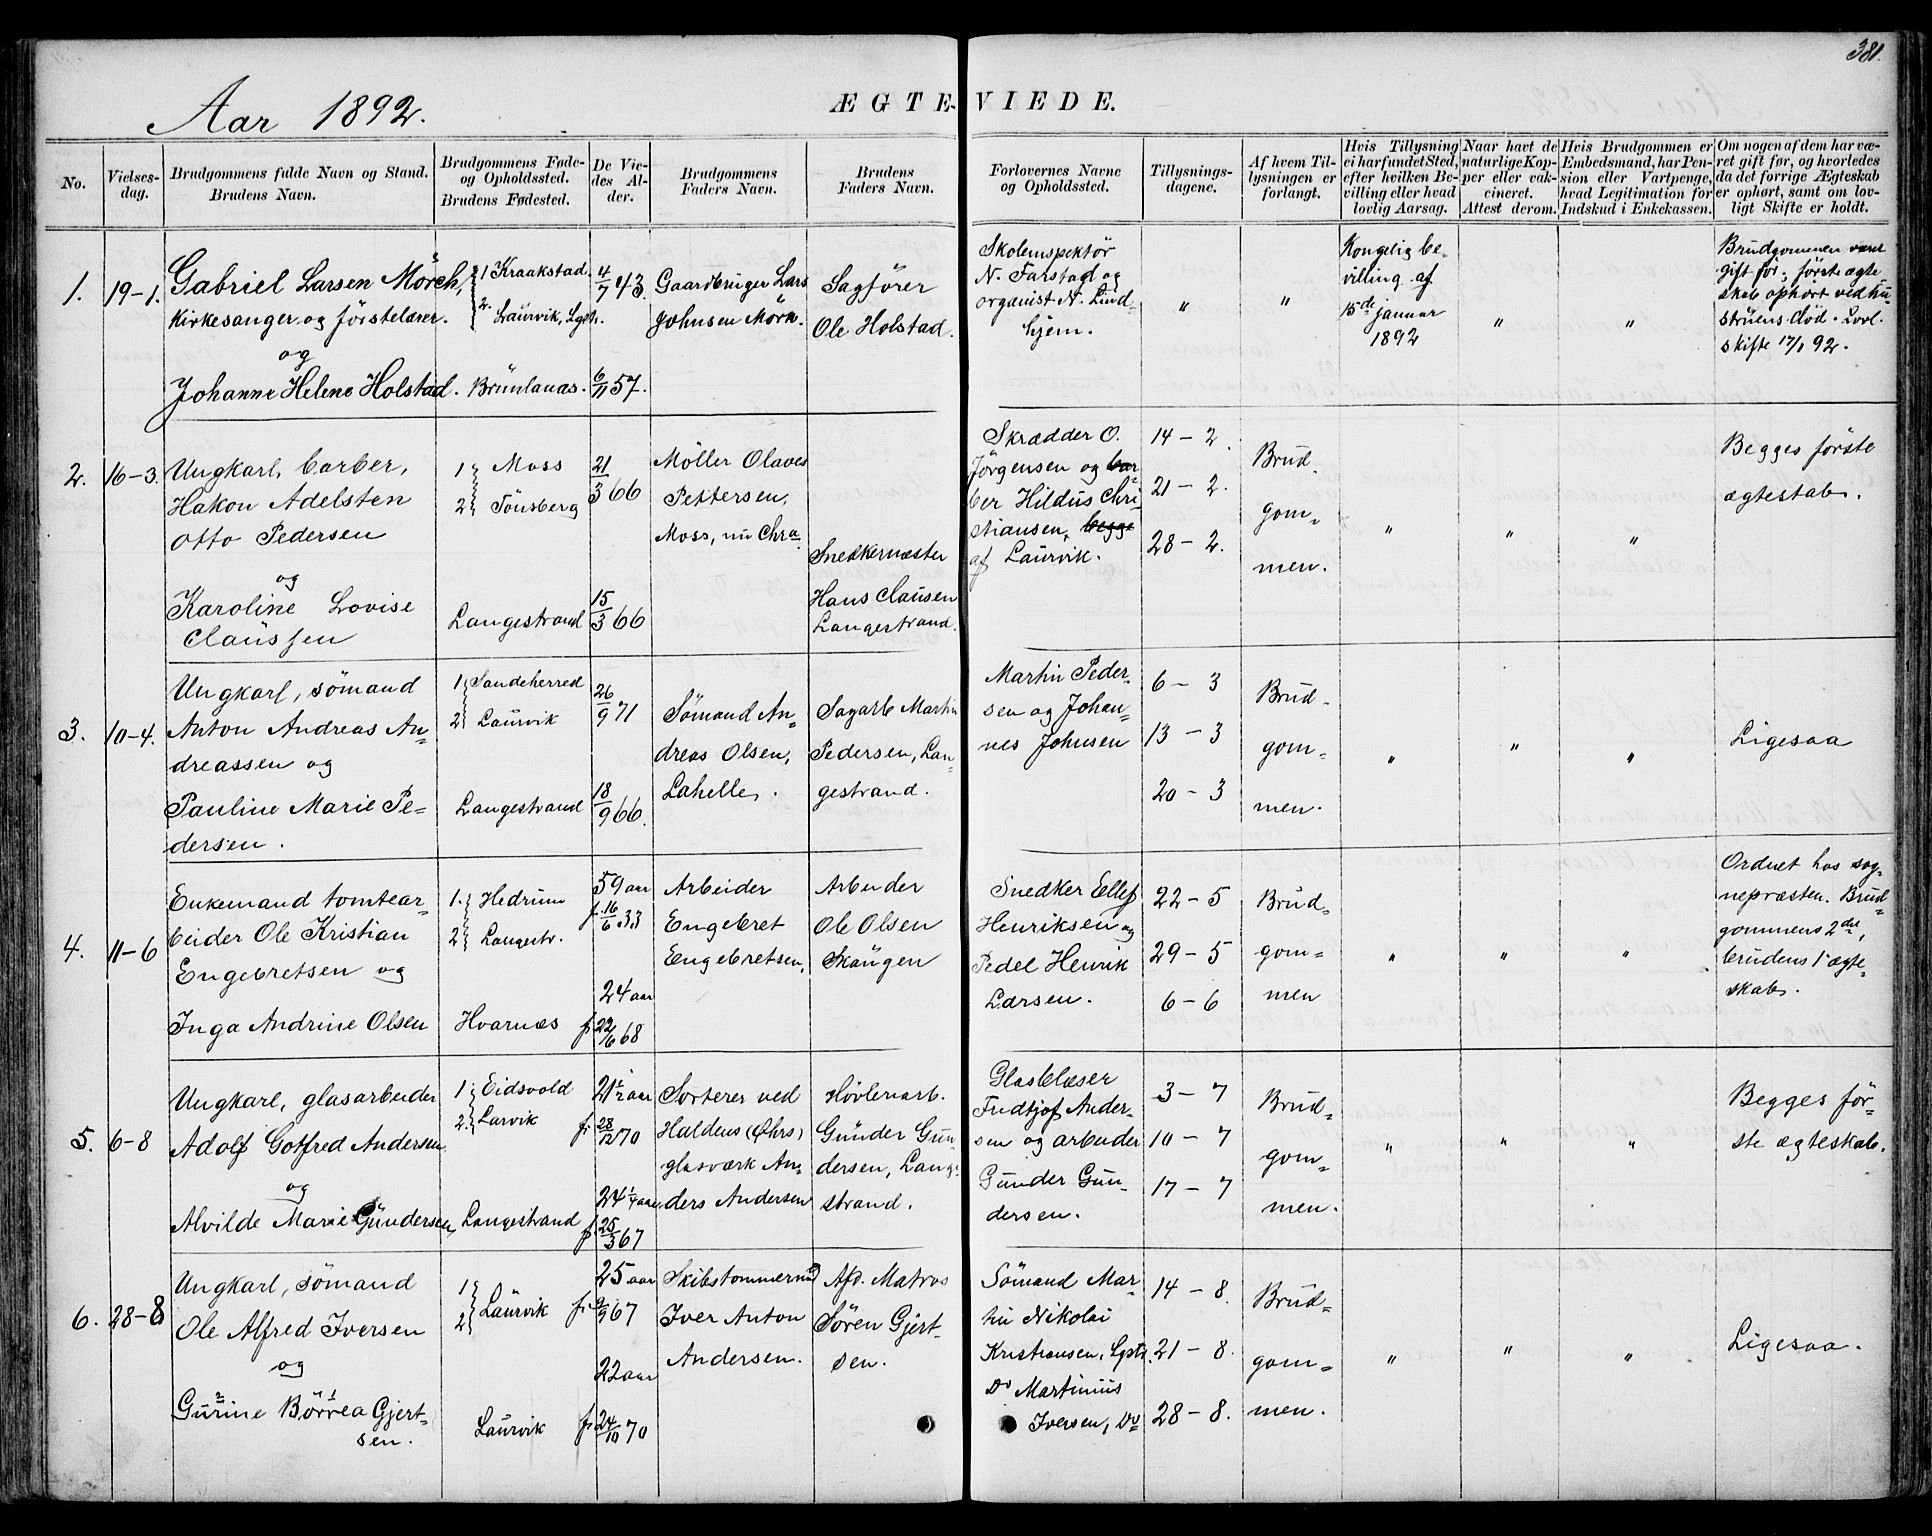 381.
Aar 1892.
ÆGTEVIEDE.
No.
Vielses-
dag.
Brudgommens fulde Navn og Stand.
Brudens Navn.
Brudgommens Føde-
og Opholdssted.
Brudens Fødested.
De Vie-
des Al-
der.
Brudgommens
Faders Navn.
Brudens
Faders Navn.
Forlovernes Navne
og Opholdssted.
Tillysnings-
dagene.
Af hvem Til-
lysningen er
forlangt.
Hvis Tillysning
ei har fundet Sted,
efter hvilken Be-
villing eller hvad
lovlig Aarsag.
Naar havt de
naturlige Kop-
per eller vak-
cineret.
Attest derom.
Hvis Brudgommen er
Embedsmand, har Pen-
sion eller Vartpenge,
hvad Legitimation for
Indskud i Enkekassen.
Om nogen af dem har væ-
ret gift før, og hvorledes
da det forrige Ægteskab
er ophørt, samt om lov-
ligt Skifte er holdt.
1.
19-1.
Gabriel Larsen Mörch,
Kirkesanger og förstelærer.
og
Johanne Helene Holstad.
1 Kraakstad.
2. Laurvik, Lgstr.
Brunlanæs.
4/7 43.
6/11 57.
Gaardbruger Lars
Johnsen Mörk.
Sagförer
Ole Holstad.
Skoleinspektör
N. Farstad og
organist N. Lind-
hjem.
"
"
Kongelig be-
villing af
15de januar
1892
"
"
Brudgommen været
gift før; første ægte-
skab ophørt ved hu-
struens død. Lovl.
skifte 17/1 92.
2.
16-3.
Ungkarl, barber,
Hakon Adelsten
Otto Pedersen
og
Karoline Lovise
Claussen
1 Moss
2 Tönsberg
Langestrand
21/3 66
15/3 66
Möller Olaves
Pettersen,
Moss, nu Chra.
Snedkermester
Hans Clausen
Langestrand.
Skrædder O.
Jörgensen og bar
ber Hildus Chri-
stiansen, begge
af Laurvik.
14-2.
21-2.
28-2.
Brud-
gom-
men.
"
"
"
Begges förste
ægteskab.
3.
10-4.
Ungkarl, sömand
Anton Andreas An-
dreassen og
Pauline Marie Pe-
dersen.
1 Sandeherred
2 Laurvik
Langestrand
26/9 71
18/9 66.
Sömand An-
dreas Olsen,
Lahelle.
Sagarb. Martin
Pedersen, Lan-
gestrand.
Martin Peder-
sen og Johan-
nes Johnsen
6-3
13-3
20-3
Brud-
gom-
men.
"
"
"
Ligesaa
4.
11-6
Enkemand tomtear-
beider Ole Kristian
Engebretsen og
Inga Andrine Olsen
1. Hedrum
2 Langestr.
Hvarnæs
59 aar
f. 16/6 33
24 aar
f. 22/6 68
Arbeider
Engebret
Engebretsen,
Arbeider
Ole Olsen
Skaugen
Snedker Ellef
Henriksen og
Pedel Henrik
Larsen.
22-5
29-5
6-6
Brud-
gom-
men
"
"
"
Ordnet hos sog-
nepræsten. Brud-
gommens 2det,
brudens 1 ægte-
skab.
5.
6-8
Ungkarl, glasarbeider
Adolf Gotfred Andersen
og
Alvilde Marie Gundersen,
1. Eidsvold
2. Larvik
Langestrand
21 1/2 aar
f. 28/12 70
24 1/4 aar.
f. 25/3 67
Sorterer ved
Haldens (Fhrs)
glasværk An-
ders Andersen
Høvleriarb.
Gunder Gun-
dersen, Lange-
strand.
Glasblæser
Fridtjof Ander-
sen og arbeider
Gunder Gun-
dersen.
3-7
10-7
17-7
Brud-
gom-
men.
"
"
"
Begges för-
ste ægteskab.
6.
28-8
Ungkarl, sömand
Ole Alfred Iversen
og
Gurine Börrea Gjert-
sen.
1
2 Laurvik
Laurvik
25 aar
f. 2/9 67
22 aar
f. 24/10 70
Skibstømmermd
Iver Anton
Andersen.
Afd. Matros
Sören Gjert-
sen.
Sömand Mar-
tin Nikolai
Kristiansen, Lgstr.
Do Martinius
Iversen, Do
14-8.
21-8.
28-8.
Brud-
gom-
men.
"
"
"
Ligesaa.